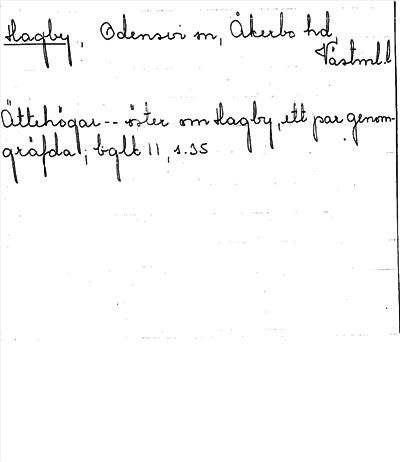 Hagby, Odensvi sn, Åkerbo hd,
Västml.l
Ättehögar -- öster om Hagby, ett par genom-
gräfda; bglt 11, s. 35